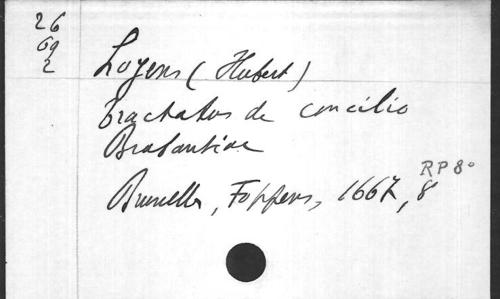 26
69
2
Loyens (Hubert)
tractatus de concilio
Brabantiae
RP 8°
Bruxelles, Foppens, 1667, 8°